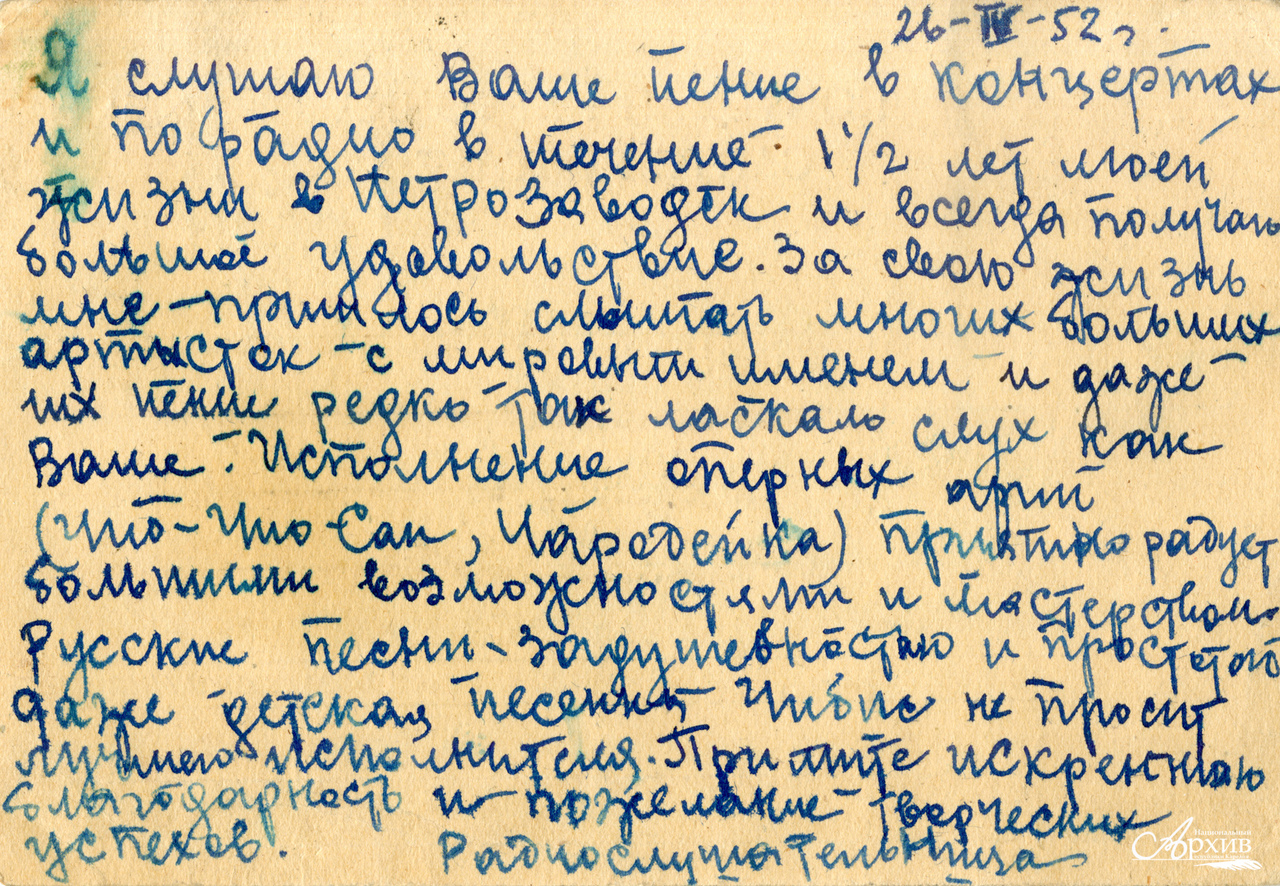 26-IV-52 г.
Я слушаю Ваше пение в концертах
и по радио в течение 1 1/2 лет моей
жизни в Петрозаводск и всегда получаю
большое удовольствие. За свою жизнь
мне пришлось слышать многих больших
артисток с мировым именем и даже
их пение редко так ласкало слух как
Ваше. Исполнение оперных арий
(Чио-Чио-Сан, Чародейка) приятно радует
большими возможностями и мастерством.
Русские песни - задушевностью и простотой
даже детская песенка Чибис не просит
лучшего исполнителя. Примите искреннюю
благодарность и пожелание творческих
успехов. Радиослушательница
Национальный
Архив